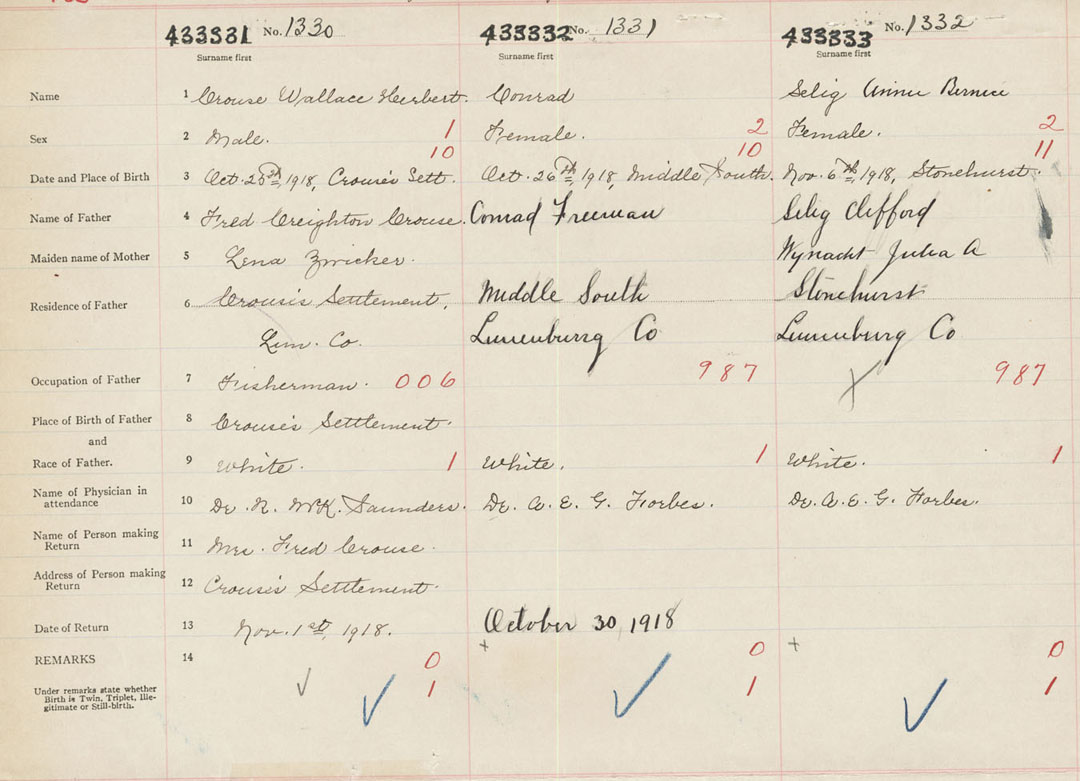 433331 No. 1330 433332 No. 1331 433333 No. 1332
Surname first Surname first Surname first
Name 1 Crouse Wallace Herbert. Conrad Selig Annie Bernice
Sex 2 Male. 1 Female. 2 Female. 2
10 10 11
Date and Place of Birth 3 Oct. 1918, Crouse's Sett. Oct. 26th, 1918, Middle South. Nov. 6th, 1918, Stonehurst.
Name of Father 4 Fred Creighton Crouse. Conrad Freeman Selig Clifford
Maiden name of Mother 5 Lena Zwicker. Wynacht Julia A
Residence of Father 6 Crouse's Settlement, Middle South Stonehurst
Lun. Co. Lunenburg Co Lunenburg Co
Occupation of Father 7 Fisherman. 006 987 987
Place of Birth of Father 8 Crouse's Settlement.
and
Race of Father. 9 White. 1 White. 1 White. 1
Name of Physician in
attendance 10 Dr. R. McK. Saunders. Dr. A. E. G. Forbes. Dr. A. E. G. Forbes.
Name of Person making
Return 11 Mrs. Fred Crouse.
Address of Person making
Return 12 Crouse's Settlement.
Date of Return 13 Nov. 1st, 1918. October 30, 1918
REMARKS 14 0 0 0
Under remarks state whether
Birth is Twin, Triplet, Ille-
gitimate or Still-birth. 1 1 1